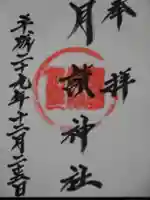 奉拝
月讀神社
平成二十九年十二月二十三日